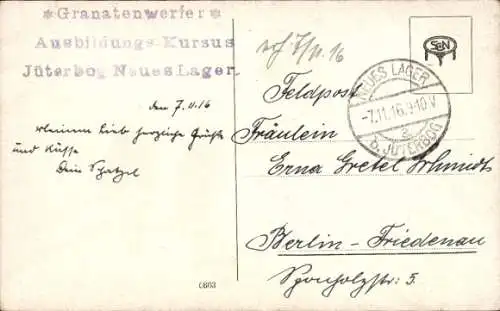 *Granatenwerfer*
Ausbildungs-Kursus
Jüterbog Neues Lager.
den 7.11.16
meinem Lieb herzliche Grüße
und Küsse
Dein Schatzel
7/11. 16
SBN
NEUES LAGER
-7.11.16.9-10V
a
b. JÜTERBOG
Feldpost
Fräulein
Erna Gretel Schmidt
Berlin-Friedenau
Sponholzstr: 5.
0863